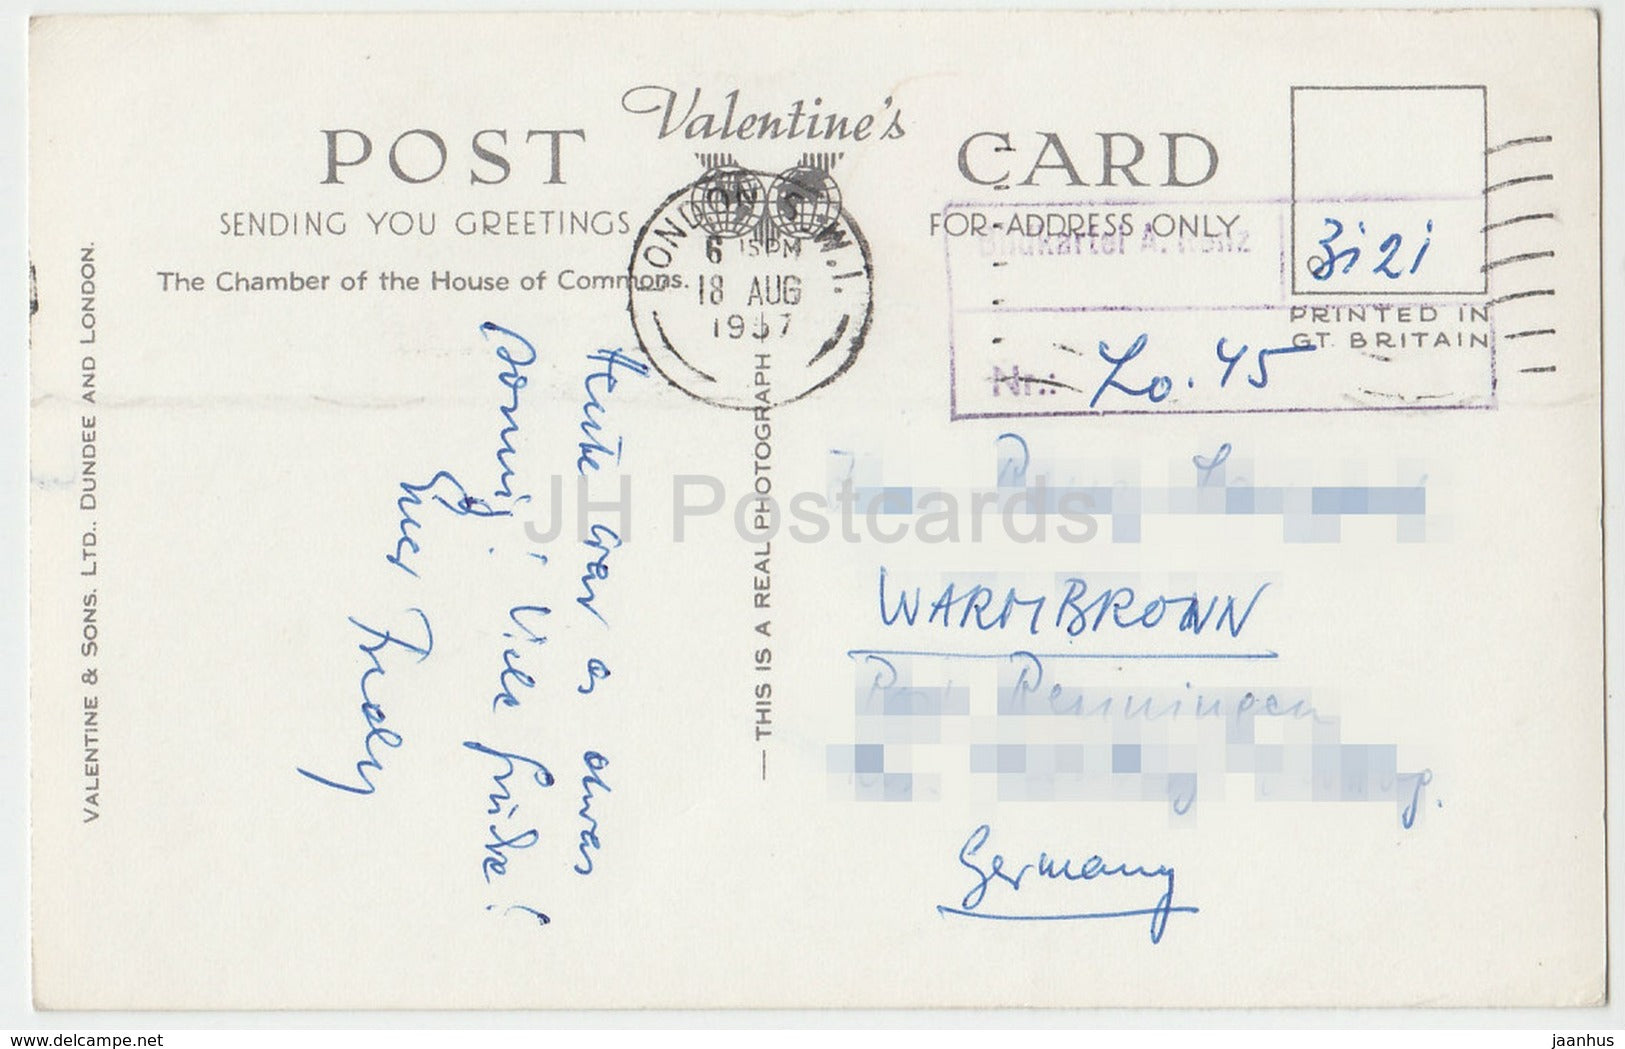 POST CARD
Valentine's
SENDING YOU GREETINGS
FOR ADDRESS ONLY
The Chamber of the House of Commons.
LONDON S.W.1.
6 15 PM
18 AUG
1957
Bildkartei A. Renz
3i2i
Nr.: Lo. 45
PRINTED IN
GT. BRITAIN
VALENTINE & SONS. LTD., DUNDEE AND LONDON.
THIS IS A REAL PHOTOGRAPH
Heute war es etwas
sonnig! Viele Grüße!
Euer Fredy
WARMBRONN
Post Renningen
Germany
JH Postcards
delcampe.net
jaanhus